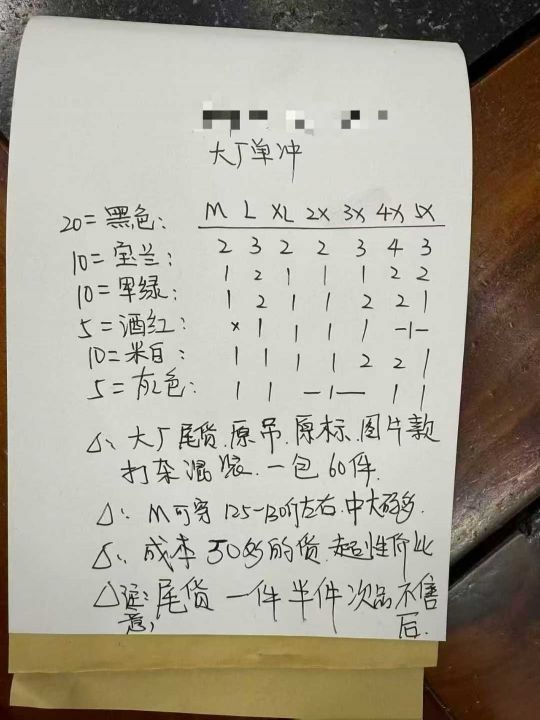 大厂单冲
M L XL 2X 3X 4X 5X
20=黑色: 2 3 2 2 3 4 3
10=宝兰: 1 2 1 1 1 2 2
10=军绿: 1 2 1 1 2 2 1
5=酒红: × 1 1 1 1 -1-
10=米白: 1 1 1 1 2 2 1
5=灰色: 1 1 —1— 1 1
△: 大厂尾货.原吊.原标.图片款
打杂混装.一包60件.
△: M可穿125-130斤左右.中大码多.
△: 成本50多的货.超性价比
△注: 尾货一件半件次品不售
意, 后.